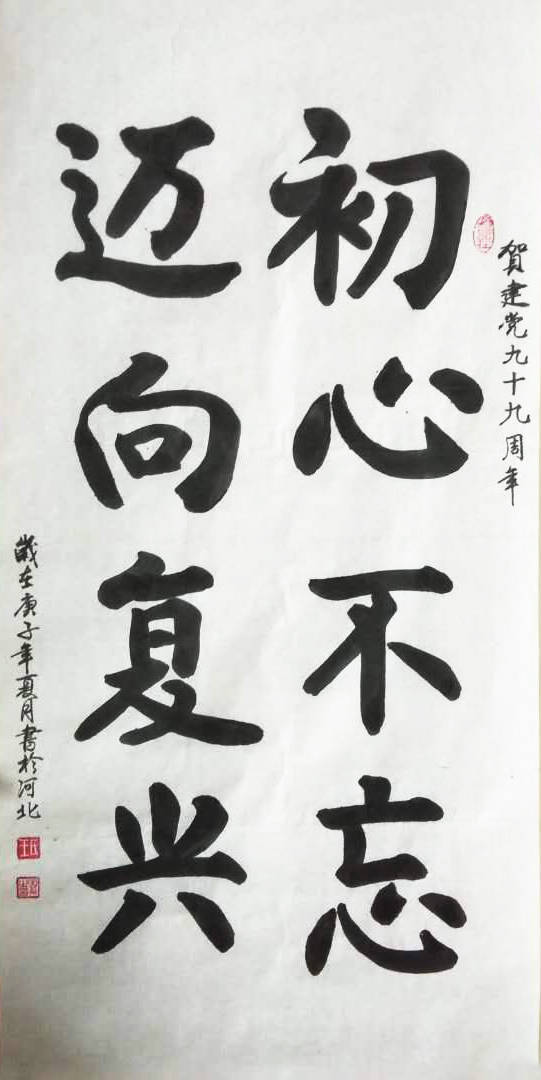 贺建党九十九周年
初心不忘
迈向复兴
歲在庚子年夏月書於河北